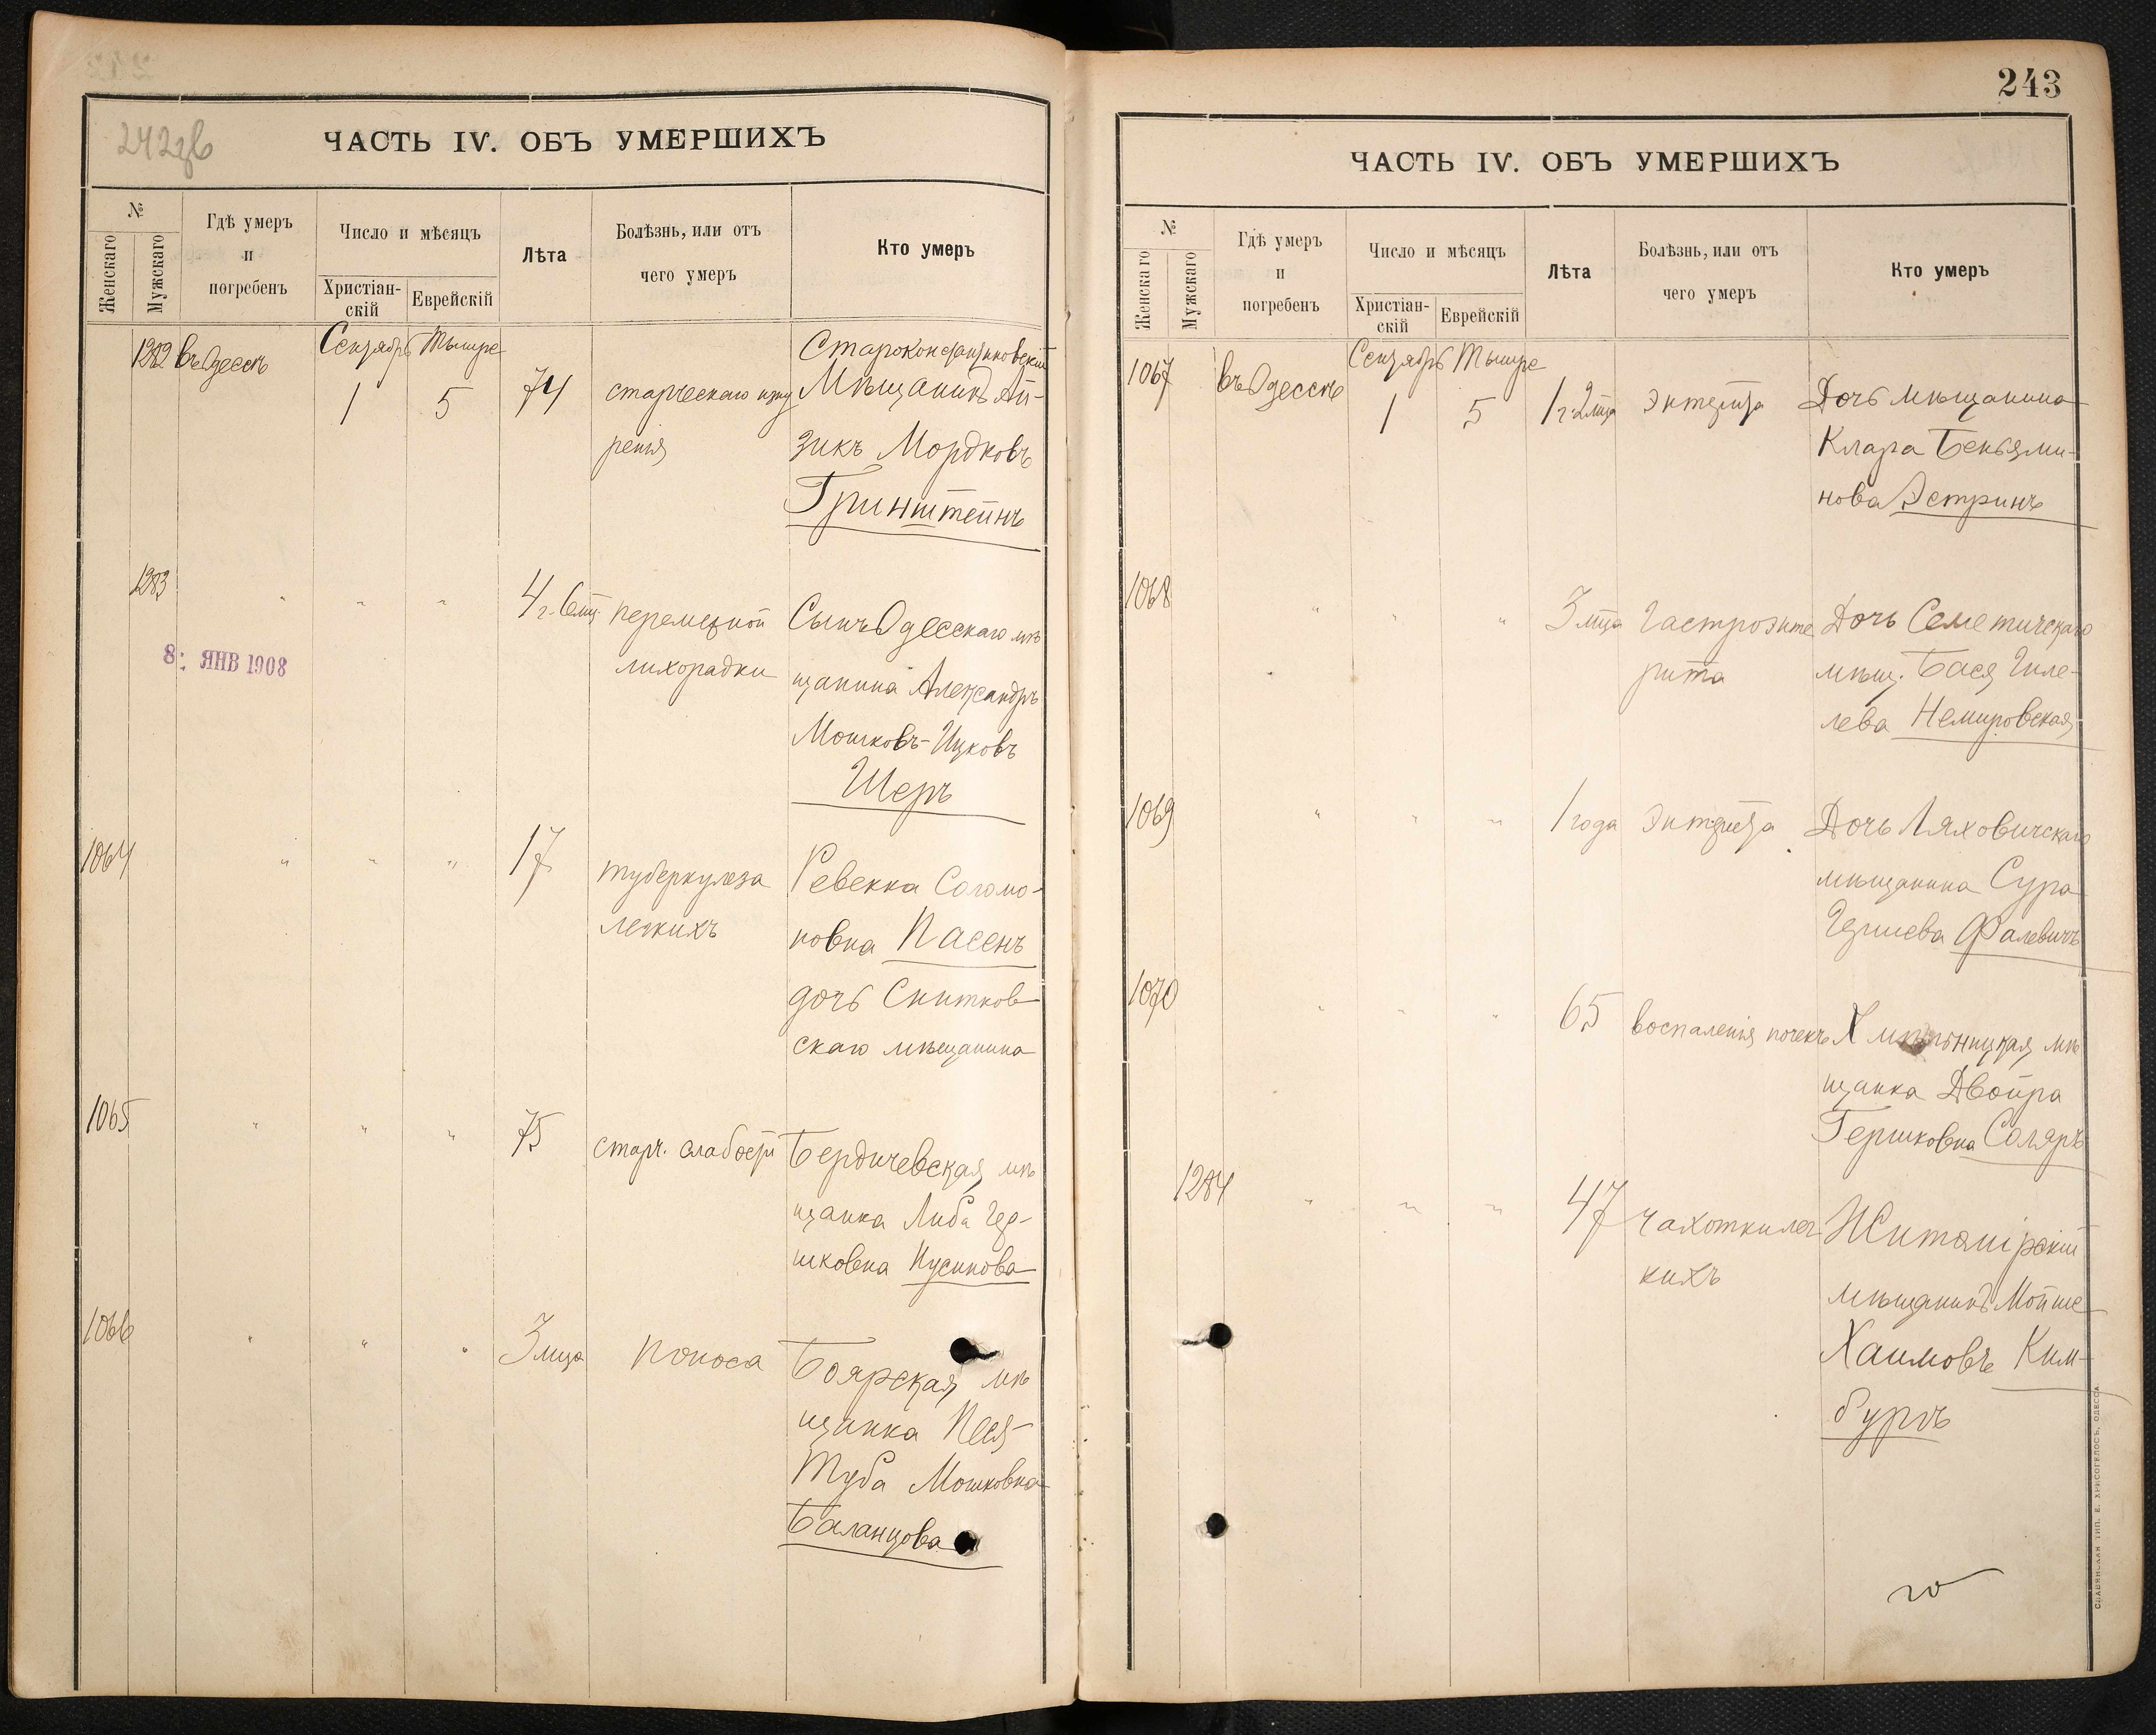 242об
ЧАСТЬ IV. ОБЪ УМЕРШИХЪ
№
Женскаго
Мужскаго
Гдѣ умеръ
и
погребенъ
Число и мѣсяцъ
Христіан-
скій
Еврейскій
Лѣта
Болѣзнь, или отъ
чего умеръ
Кто умеръ
1282 въ Одессѣ
Сентябрь Тышре
1 5
74
старческаго изну
ренія
Староконстантиновскій
Мѣщанинъ Ай-
зикъ Мордковъ
Гринштейнъ
1283
" " "
4 г. 6 мц.
перемежной
лихорадки
Сынъ Одесскаго мѣ
щанина Александръ
Мошковъ-Ицковъ
Шеръ
8: ЯНВ 1908
1064
" " "
17
туберкулеза
легкихъ
Ревекка Соломо-
новна Пасенъ
дочь Снитков
скаго мѣщанина
1065
" " "
75
старч. слабости
Бердичевская мѣ
щанка Либа Гер-
шковна Нусинова
1066
" " "
3 мца
поноса
Боярская мѣ
щанка Песя
Туба Мошковна
Баланцова
243
ЧАСТЬ IV. ОБЪ УМЕРШИХЪ
№
Женскаго
Мужскаго
Гдѣ умеръ
и
погребенъ
Число и мѣсяцъ
Христіан-
скій
Еврейскій
Лѣта
Болѣзнь, или отъ
чего умеръ
Кто умеръ
1067
въ Одессѣ
Сентябрь Тышре
1 5
1 г. 2 мца
энтерита
Дочь мѣщанина
Клара Беньями-
нова Эстринъ
1068
" " "
3 мца
гастроэнте
рита
Дочь Семетичскаго
мѣщ. Бася Гиле-
лева Немировская
1069
" " "
1 года
энтерита
Дочь Ляховичскаго
мѣщанина Сура
Фалевичъ
1070
" " "
65
воспаленія почекъ
Хмѣльницкая мѣ
щанка Двойра
Гершковна Соляръ
1284
" " "
47
чахотки лег
кихъ
Житомірскій
мѣщанинъ Мойше
Хаимовъ Ким-
бургъ
СЛАВЯНСКАЯ ТИП. Е. ХРИСОГЕЛОСЪ, ОДЕССА